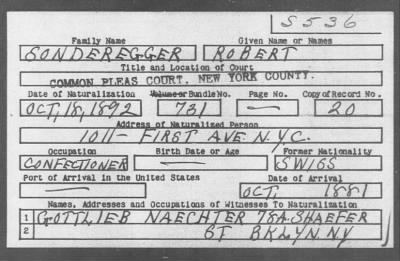 S536
Family Name Given Name or Names
SONDEREGGER ROBERT
Title and Location of Court
COMMON PLEAS COURT, NEW YORK COUNTY.
Date of Naturalization Volume or Bundle No. Page No. Copy of Record No.
OCT, 18, 1892 731 — 20
Address of Naturalized Person
1011 - FIRST AVE. N.Y.C.
Occupation Birth Date or Age Former Nationality
CONFECTIONER — SWISS
Port of Arrival in the United States Date of Arrival
— OCT, 1881
Names, Addresses and Occupations of Witnesses To Naturalization
1 GOTTLIEB NAECHTER 78A SHAEFER
2 ST BKLYN. NY